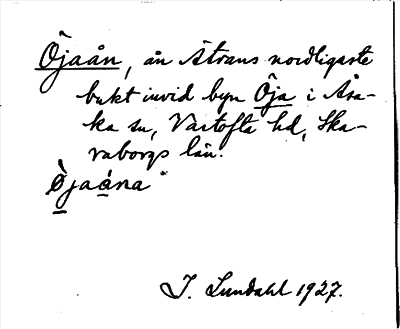 Öjaån, ån Ätrans nordligaste
bukt invid byn Öja i Åsa-
ka sn, Vartofta hd, Ska-
raborgs län.
Öjaåna
I. Lundahl 1927.